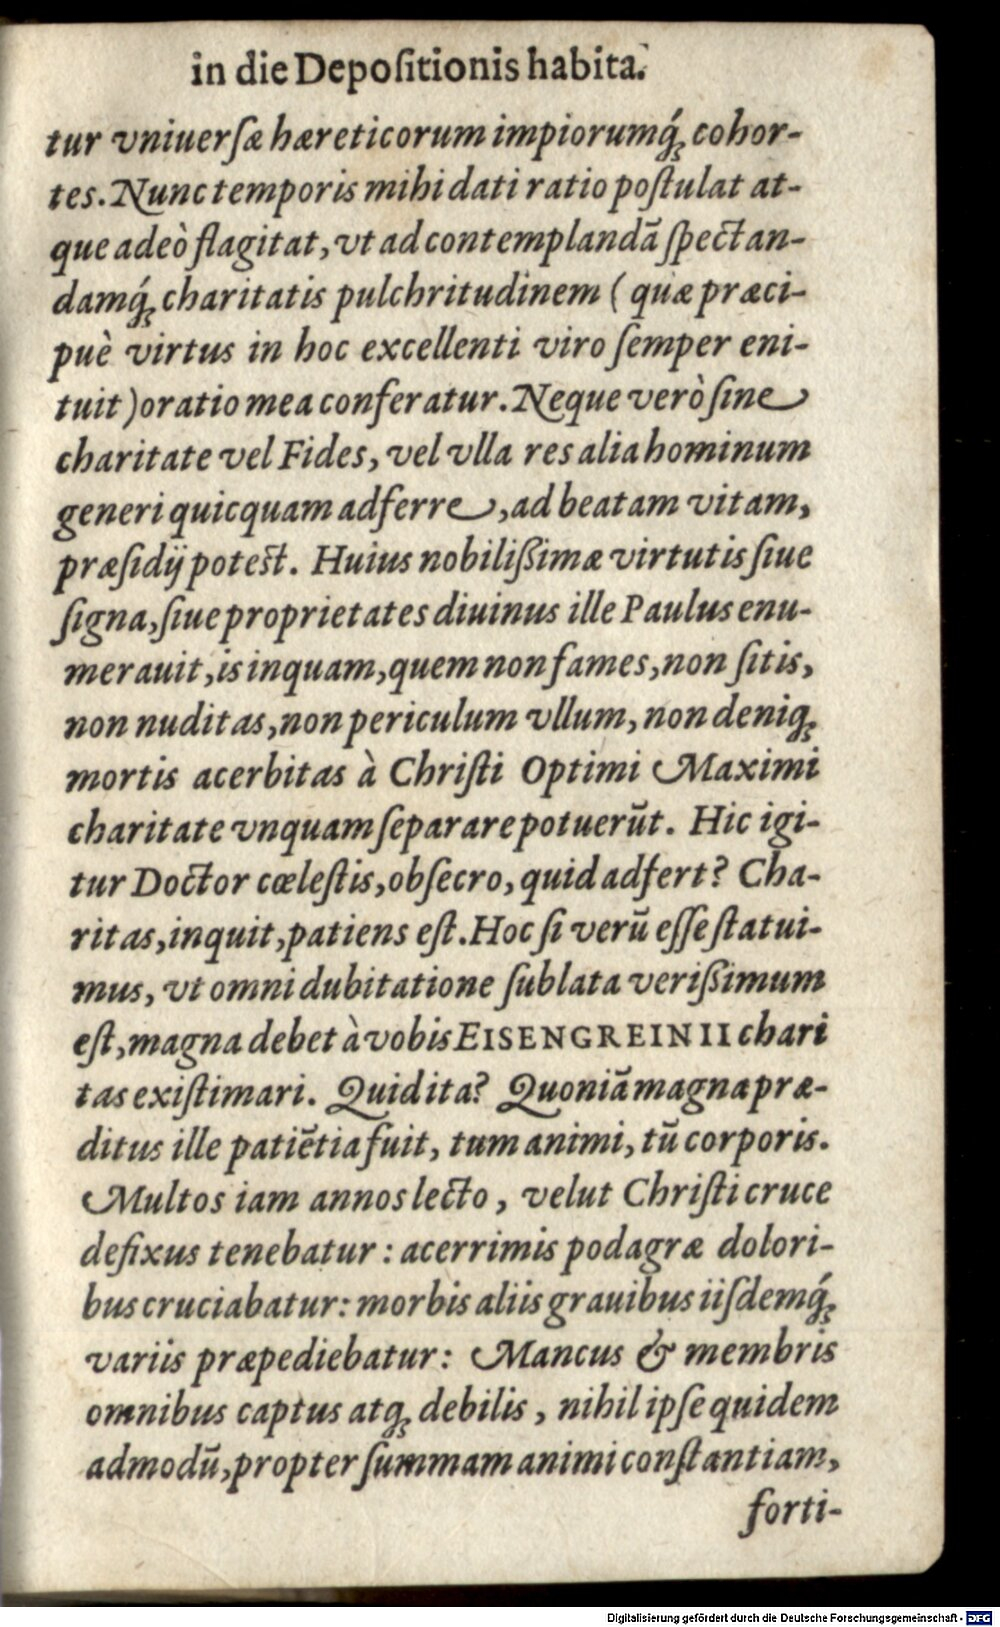 in die Depoſitionis habita.
tur vniuerſæ hæreticorum impiorumq́ꝫ cohor-
tes. Nunc temporis mihi dati ratio poſtulat at-
que adeò flagitat, vt ad contemplandā ſpectan-
damq́ꝫ charitatis pulchritudinem ( quæ præci-
puè virtus in hoc excellenti viro ſemper eni-
tuit ) oratio mea conferatur. Neque verò ſine
charitate vel Fides, vel vlla res alia hominum
generi quicquam adferre, ad beatam vitam,
præſidij poteſt. Huius nobilißimæ virtutis ſiue
ſigna, ſiue proprietates diuinus ille Paulus enu-
merauit, is inquam, quem non fames, non ſitis,
non nuditas, non periculum vllum, non deniqꝫ
mortis acerbitas à Chriſti Optimi Maximi
charitate vnquam ſeparare potuerūt. Hic igi-
tur Doctor cœleſtis, obſecro, quid adfert? Cha-
ritas, inquit, patiens eſt. Hoc ſi verū eſſe ſtatui-
mus, vt omni dubitatione ſublata verißimum
eſt, magna debet à vobis EISENGREINII chari
tas exiſtimari. Quid ita? Quoniā magna præ-
ditus ille patiētia fuit, tum animi, tū corporis.
Multos iam annos lecto, velut Chriſti cruce
defixus tenebatur: acerrimis podagræ dolori-
bus cruciabatur: morbis aliis grauibus iiſdemq́ꝫ
variis præpediebatur: Mancus & membris
omnibus captus atqꝫ debilis, nihil ipſe quidem
admodū, propter ſummam animi conſtantiam,
forti-
Digitalisierung gefördert durch die Deutsche Forschungsgemeinschaft - DFG